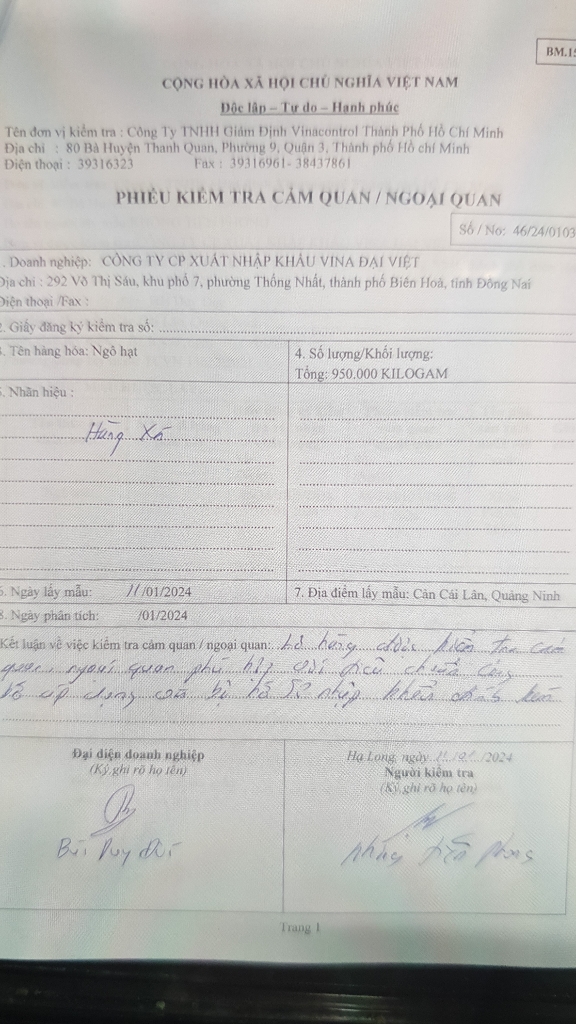 BM.15
CỘNG HÒA XÃ HỘI CHỦ NGHĨA VIỆT NAM
Độc lập – Tự do – Hạnh phúc
Tên đơn vị kiểm tra : Công Ty TNHH Giám Định Vinacontrol Thành Phố Hồ Chí Minh
Địa chỉ : 80 Bà Huyện Thanh Quan, Phường 9, Quận 3, Thành phố Hồ chí Minh
Điện thoại : 39316323 Fax : 39316961- 38437861
PHIẾU KIỂM TRA CẢM QUAN / NGOẠI QUAN
Số / No: 46/24/0103
. Doanh nghiệp: CÔNG TY CP XUẤT NHẬP KHẨU VINA ĐẠI VIỆT
Địa chỉ : 292 Võ Thị Sáu, khu phố 7, phường Thống Nhất, thành phố Biên Hoà, tỉnh Đồng Nai
Điện thoại /Fax :
. Giấy đăng ký kiểm tra số:
. Tên hàng hóa: Ngô hạt
4. Số lượng/Khối lượng:
Tổng: 950.000 KILOGAM
. Nhãn hiệu :
Hàng Xá
6. Ngày lấy mẫu: 11/01/2024
7. Địa điểm lấy mẫu: Cảng Cái Lân, Quảng Ninh
8. Ngày phân tích: /01/2024
Kết luận về việc kiểm tra cảm quan / ngoại quan: Lô hàng được kiểm tra cảm
quan, ngoại quan phù hợp với tiêu chuẩn công
bố áp dụng của hồ sơ nhập khẩu
Đại diện doanh nghiệp
(Ký ghi rõ họ tên)
Bùi Duy
Hạ Long, ngày 11/01/2024
Người kiểm tra
(Ký ghi rõ họ tên)
Phong
Trang 1